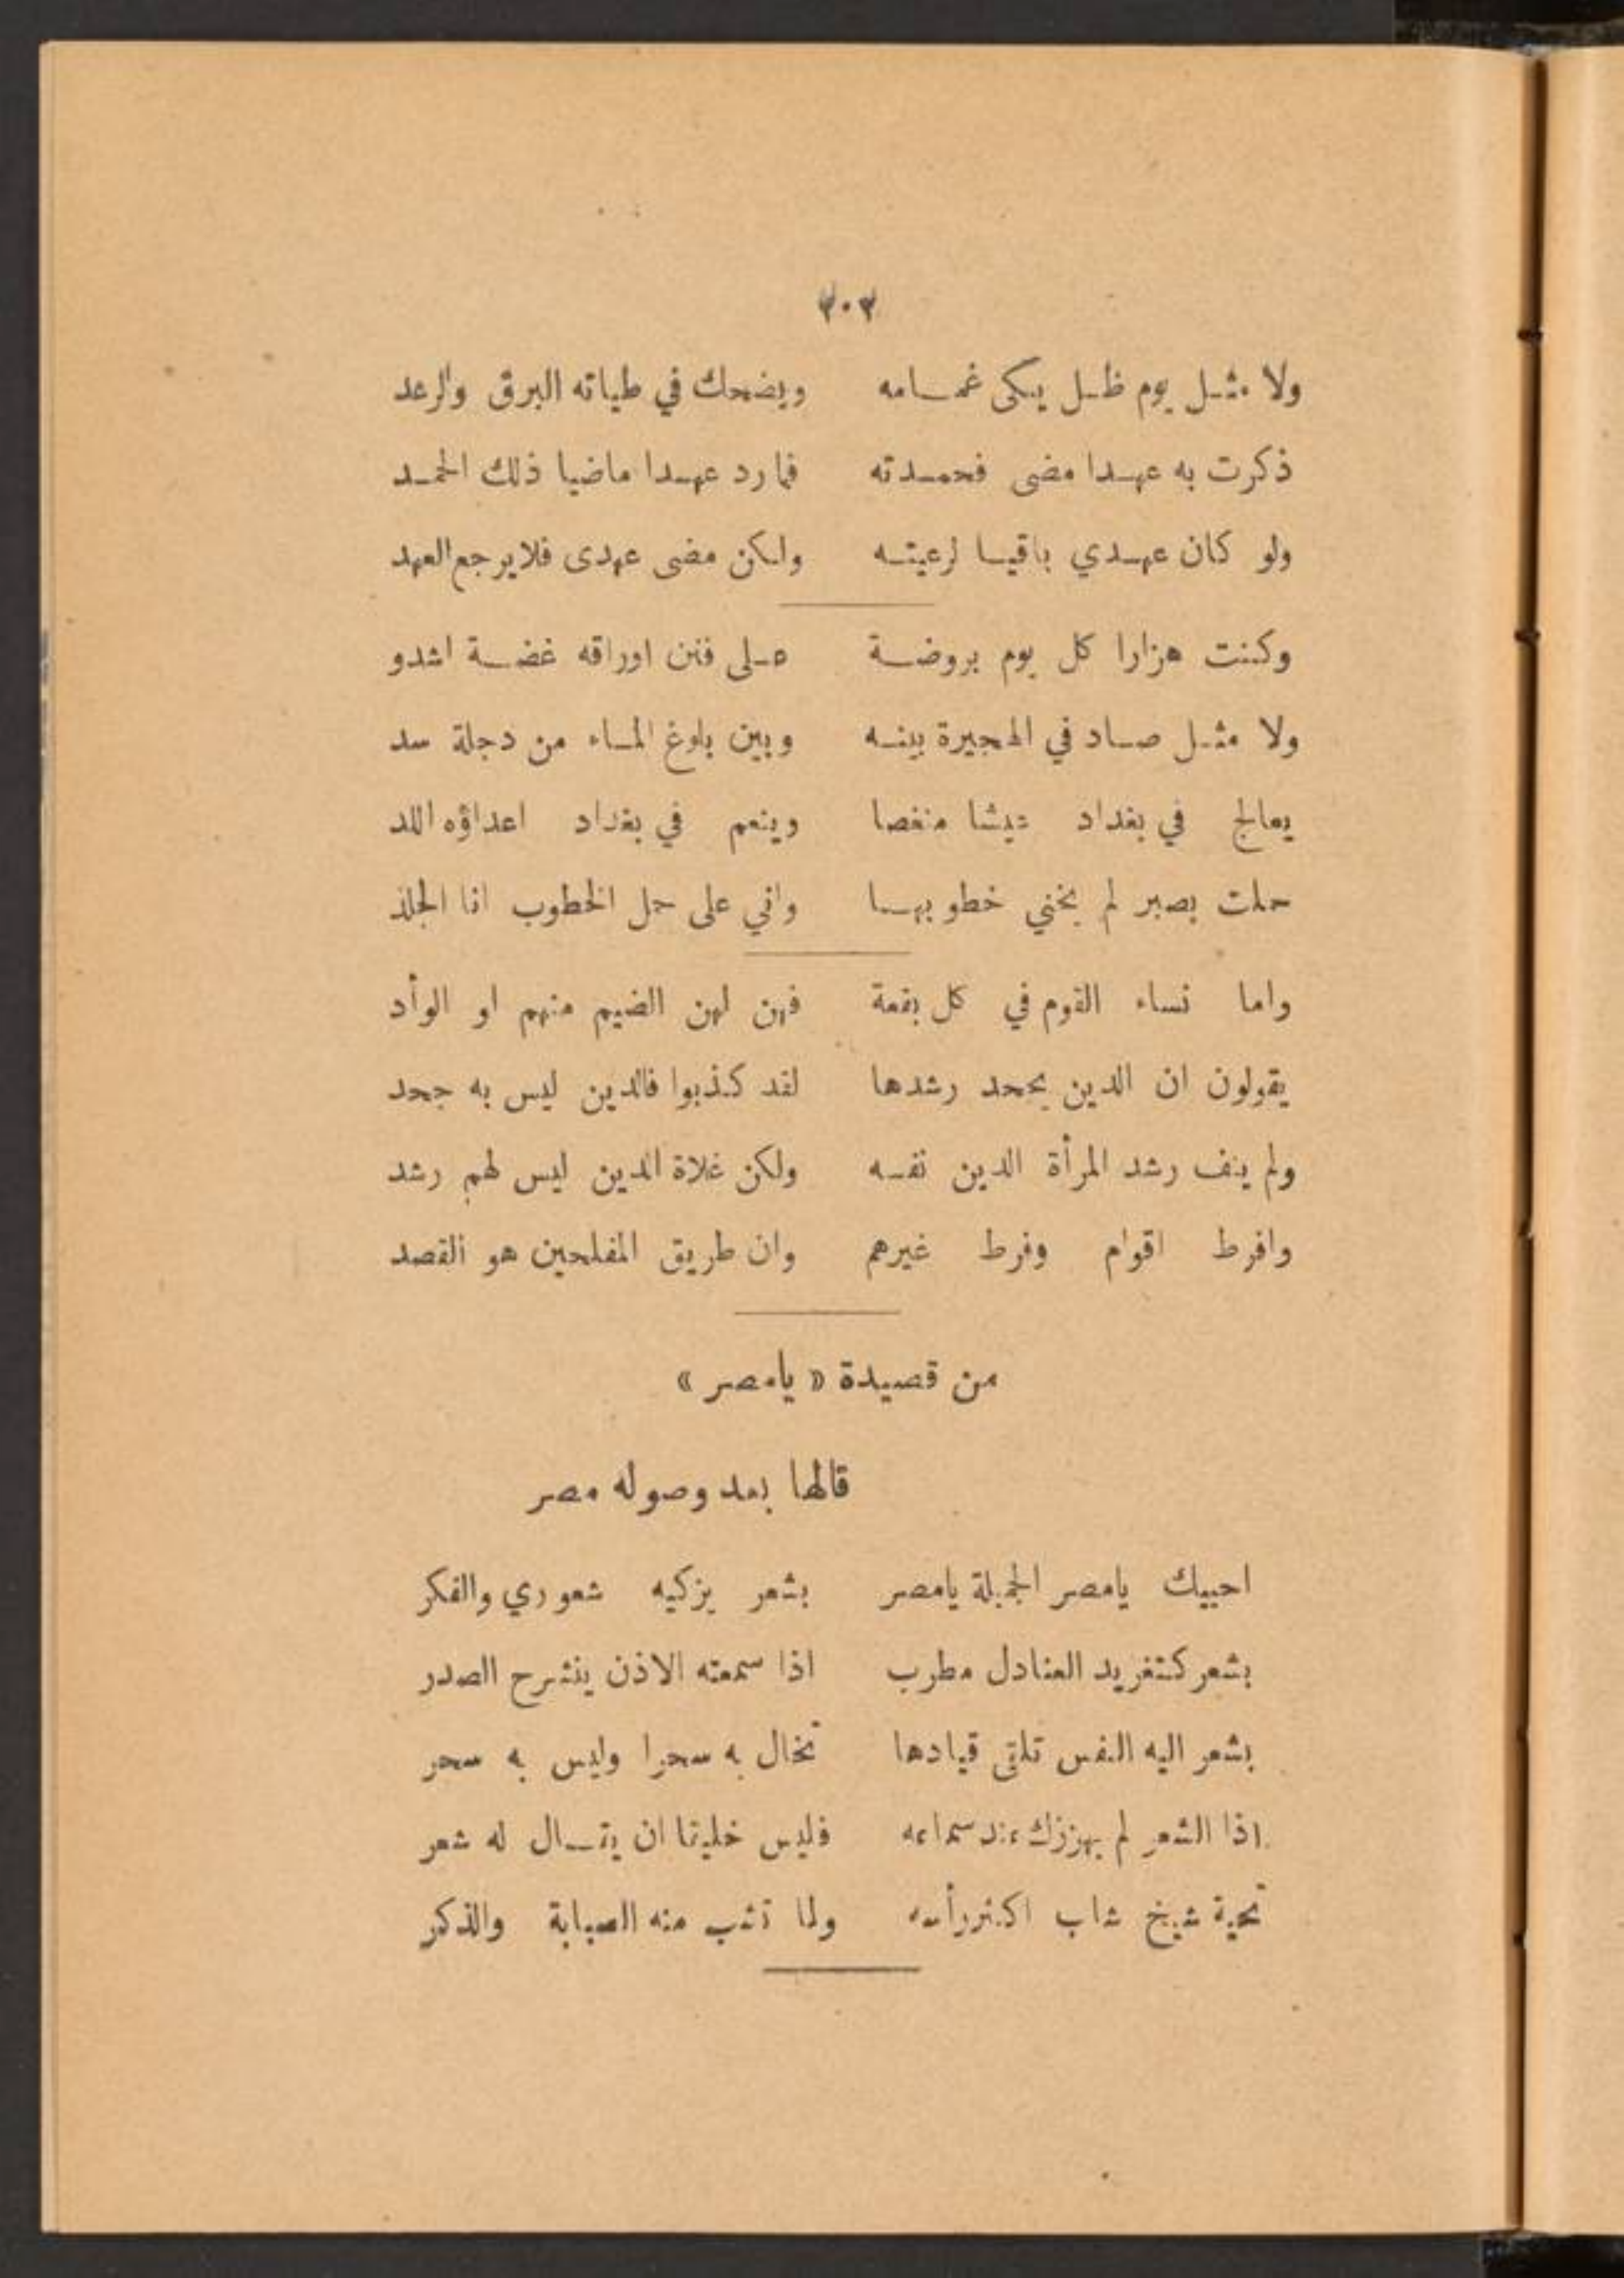 ٣٠٣
ولا مثل يوم ظل يبكى غمامه ويضحك في طياته البرق والرعد
ذكرت به عهدا مضى فحمدته فما رد عهدا ماضيا ذلك الحمد
ولو كان عهدي باقيا لرعيته ولكن مضى عهدى فلا يرجع العهد
وكنت هزارا كل يوم بروضة على فنن اوراقه غضة اشدو
ولا مثل صاد في الهجيرة بينه وبين بلوغ الماء من دجلة سد
يعالج في بغداد عيشا منغصا وينعم في بغداد اعداؤه اللد
حملت بصبر لم يخني خطوبها واني على حمل الخطوب انا الجلد
واما نساء القوم في كل بقعة فهن لهن الضيم منهم او الوأد
يقولون ان الدين يجحد رشدها لقد كذبوا فالدين ليس به جحد
ولم ينف رشد المرأة الدين نفسه ولكن غلاة الدين ليس لهم رشد
وافرط اقوام وفرط غيرهم وان طريق المفلحين هو القصد
من قصيدة « يامصر »
قالها بعد وصوله مصر
احييك يامصر الجميلة يامصر بشعر يزكيه شعوري والفكر
بشعر كتغريد العنادل مطرب اذا سمعته الاذن ينشرح الصدر
بشعر اليه النفس تلقى قيادها تخال به سحرا وليس به سحر
اذا الشعر لم يهززك عند سماعه فليس خليقا ان يقال له شعر
تحية شيخ شاب اكثر رأسه ولما تشب منه الصبابة والذكر